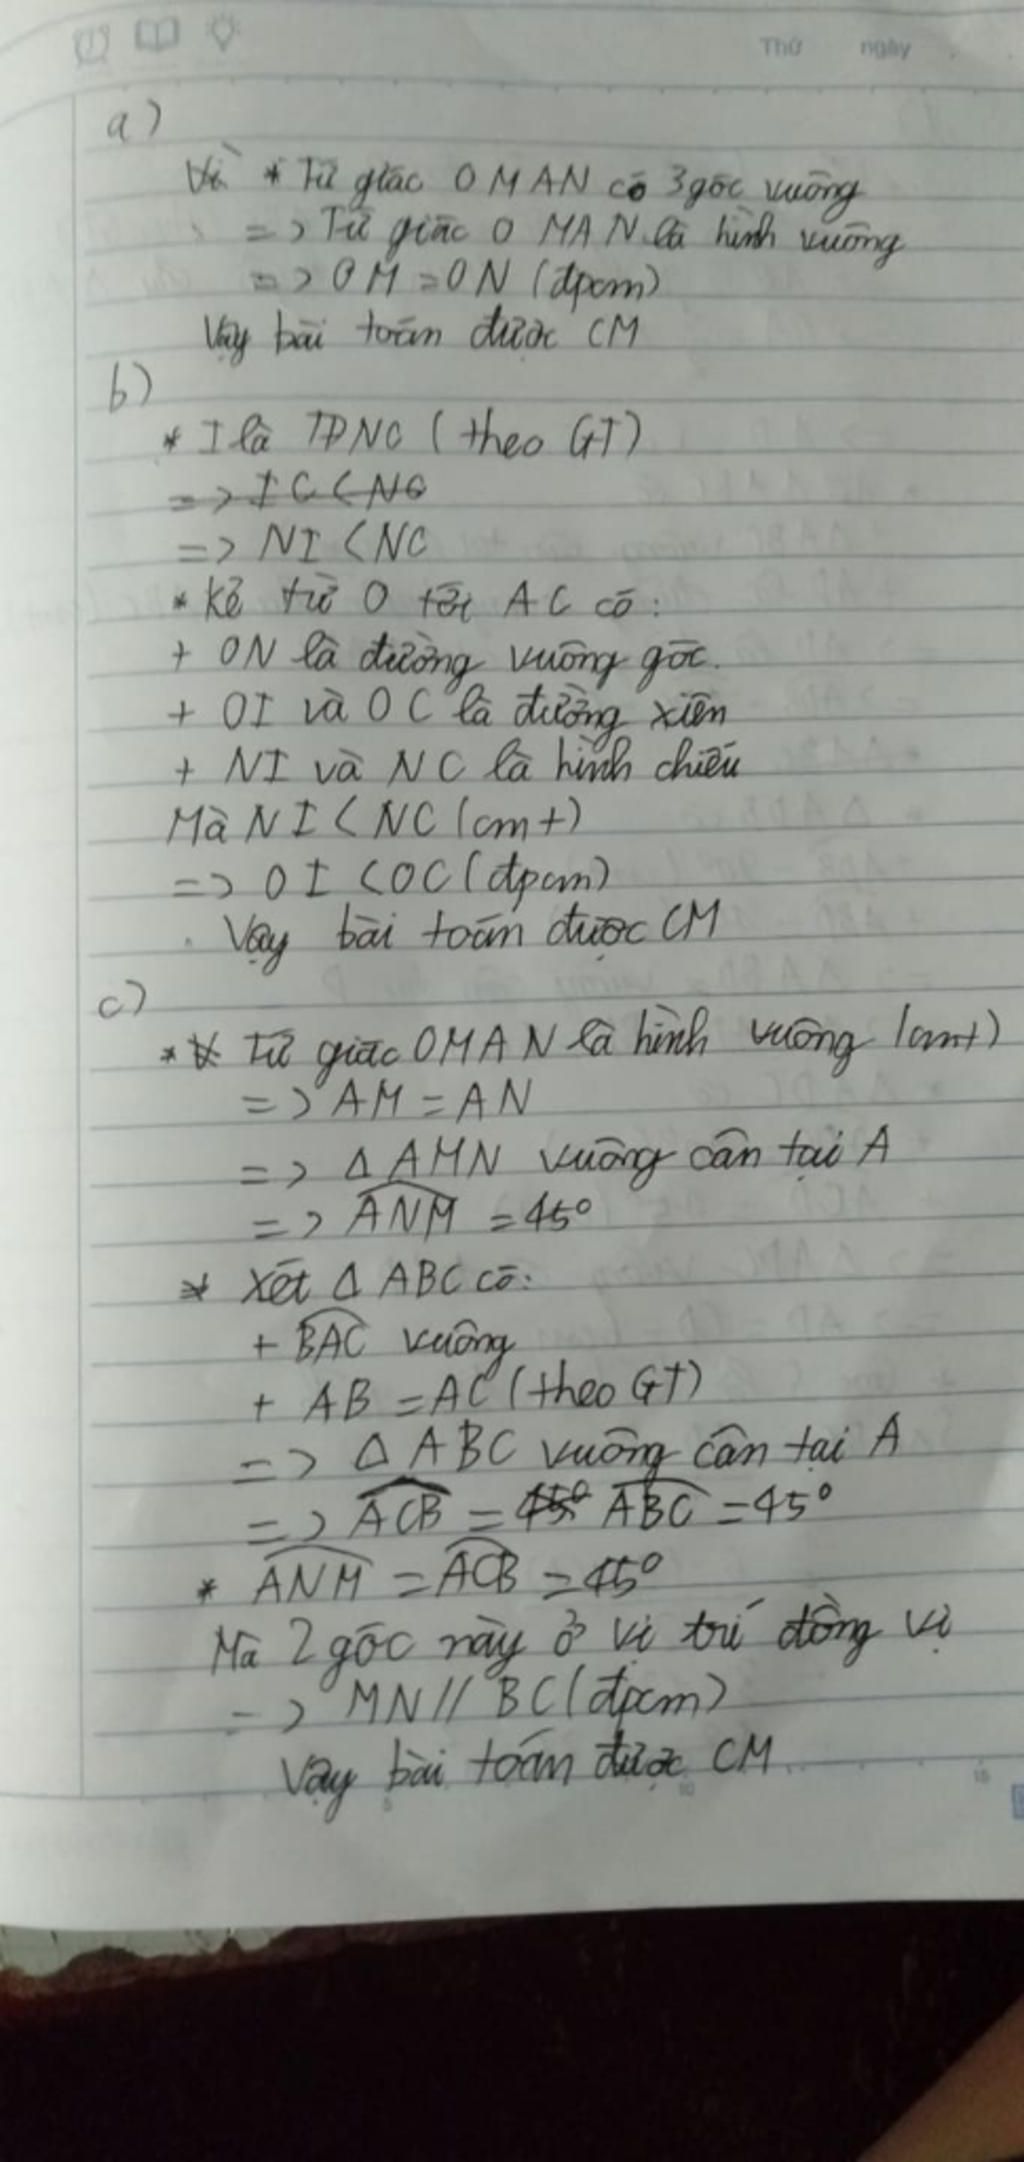 Thứ ngày
a)
Vì * Tứ giác OMAN có 3 góc vuông
=> Tứ giác OMAN là hình vuông
=> OM = ON (đpcm)
Vậy bài toán được CM
b)
* I là TĐ NC (theo GT)
=> IC < NC
=> NI < NC
* Kẻ từ O tới AC có:
+ ON là đường vuông góc.
+ OI và OC là đường xiên
+ NI và NC là hình chiếu
Mà NI < NC (cmt)
=> OI < OC (đpcm)
Vậy bài toán được CM
c)
* Tứ giác OMAN là hình vuông (cmt)
=> AM = AN
=> Δ AMN vuông cân tại A
=> ANM = 45°
* Xét Δ ABC có:
+ BAC vuông
+ AB = AC (theo GT)
=> Δ ABC vuông cân tại A
=> ACB = 45° ABC = 45°
* ANM = ACB = 45°
Mà 2 góc này ở vị trí đồng vị
=> MN // BC (đpcm)
Vậy bài toán được CM
5 10 15